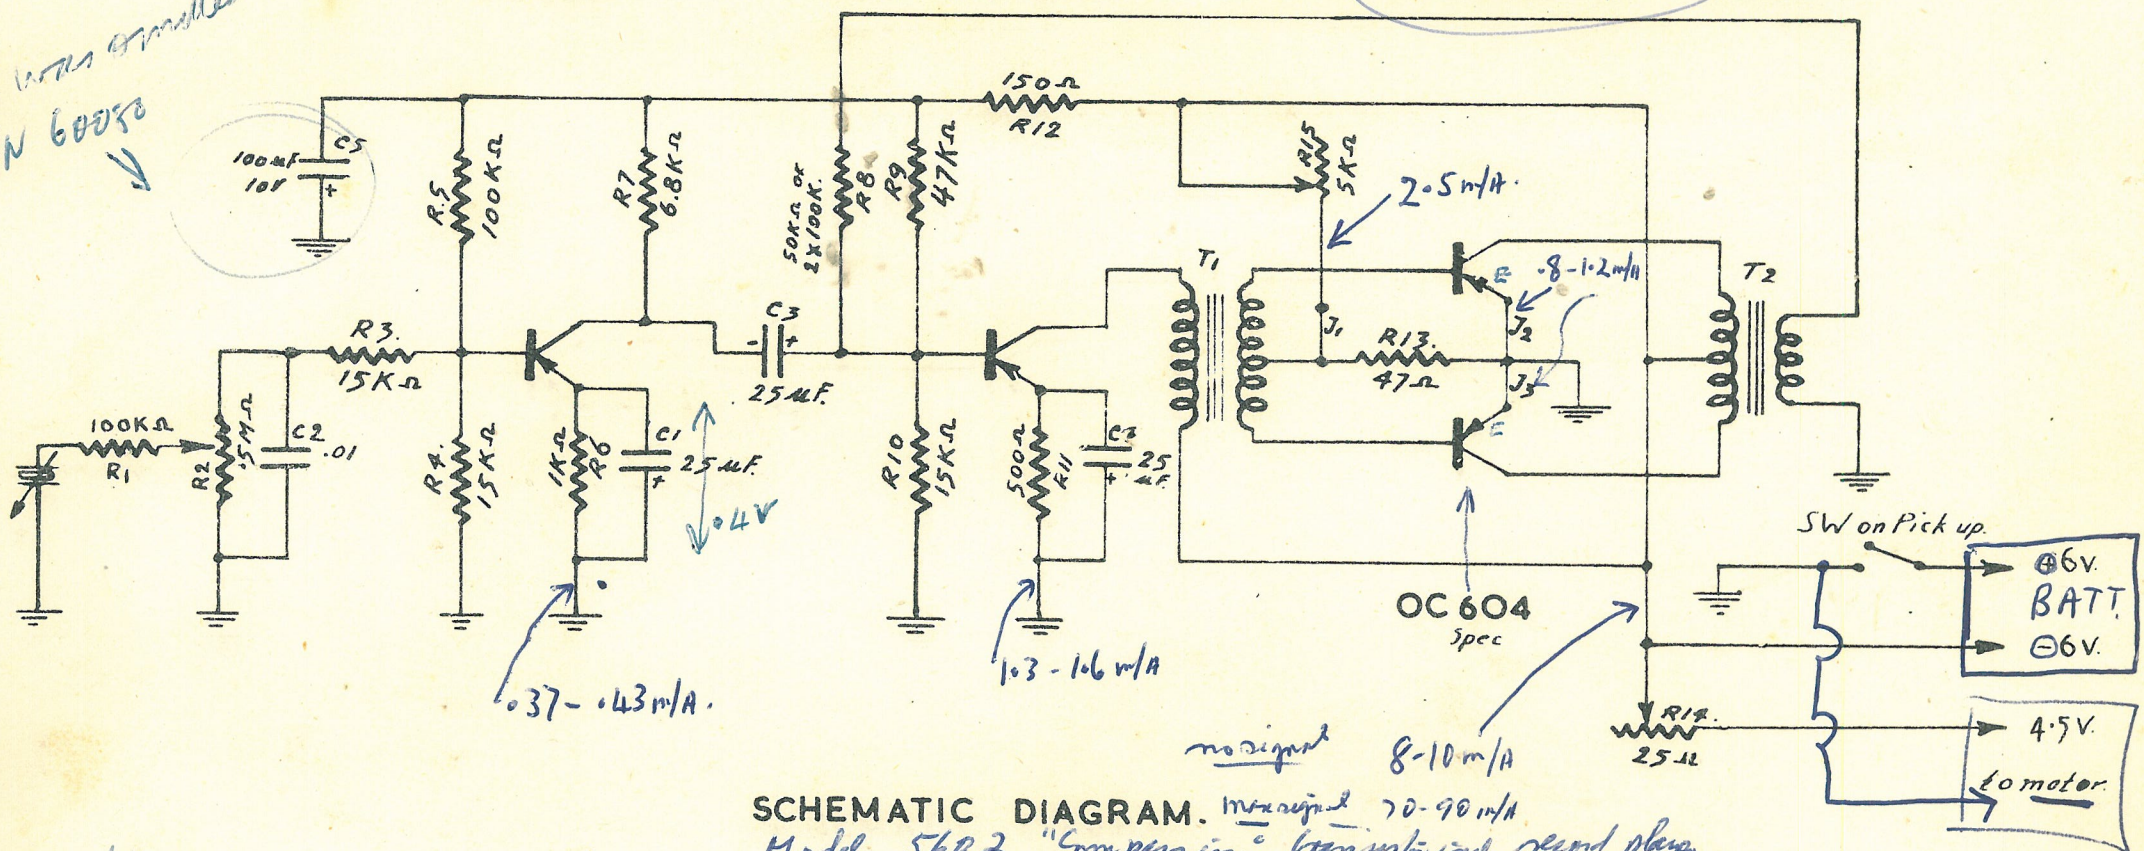 N 60050
100µF
10V
C5
+
R.5
100KΩ
R7
6.8KΩ
50KΩ or
2X100K.
R8.
R9
47KΩ
150Ω
R12
R15
5KΩ
2.5m/A.
T1
T2
E
.8-1.2m/A
J1
J2
J3
R13.
47Ω
E
R3.
15KΩ
C3
- +
25µF.
100KΩ
R1
R2
.5MΩ
C2
.01
R4.
15KΩ
1KΩ
R6
C1
25µF.
+
.04V
R10
15KΩ
500Ω
R11
25
µF.
+
OC 604
Spec
SW on Pick up.
+6V.
BATT.
-6V.
.37-.43m/A.
1.3-1.6m/A
R14.
25Ω
4.5V.
to motor.
no signal 8-10m/A
SCHEMATIC DIAGRAM.
max signal 70-90m/A
Model